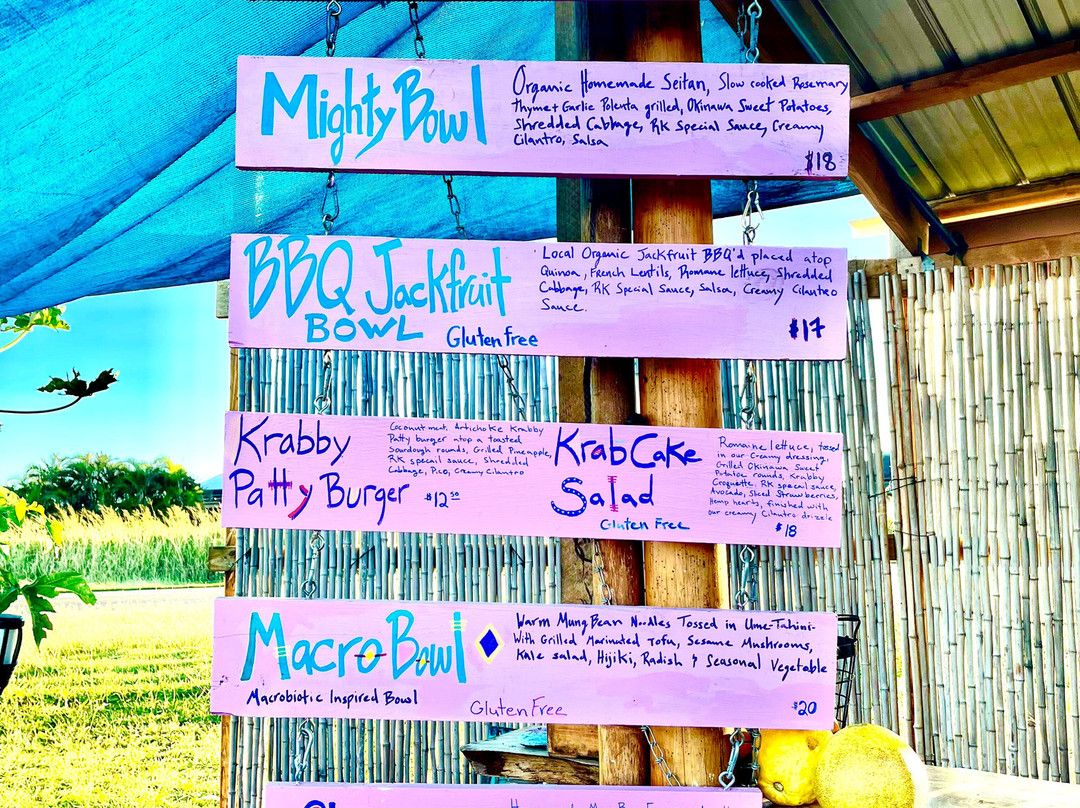 Mighty Bowl
Organic Homemade Seitan, Slow cooked Rosemary
thyme + Garlic Polenta grilled, Okinawa Sweet Potatoes,
Shredded Cabbage, RK Special Sauce, Creamy
Cilantro, Salsa
$18
BBQ Jackfruit
BOWL Gluten free
Local Organic Jackfruit BBQ'd placed atop
Quinoa, French Lentils, Romane lettuce, Shredded
Cabbage, RK Special Sauce, Salsa, Creamy Cilantro
Sauce.
$17
Krabby
Patty Burger
Coconut meat, Artichoke Krabby
Patty burger atop a toasted
Sourdough rounds, Grilled Pineapple,
RK specail sauce, Shredded
Cabbage, Pico, Creamy Cilantro
$12.50
Krab Cake
Salad
Gluten Free
Romaine lettuce, tossed
in our Creamy dressing,
Grilled Okinawa Sweet
Potatoe rounds, Krabby
Croquette, RK special sauce,
Avocado, Sliced Strawberries,
Hemp hearts, finished with
our creamy Cilantro drizzle
$18
Macro Bowl
Macrobiotic Inspired Bowl
Gluten Free
Warm Mung Bean Noodles Tossed in Ume-Tahini-
With Grilled Marinated Tofu, Sesame Mushrooms,
Kale salad, Hijiki, Radish & Seasonal Vegetable
$20